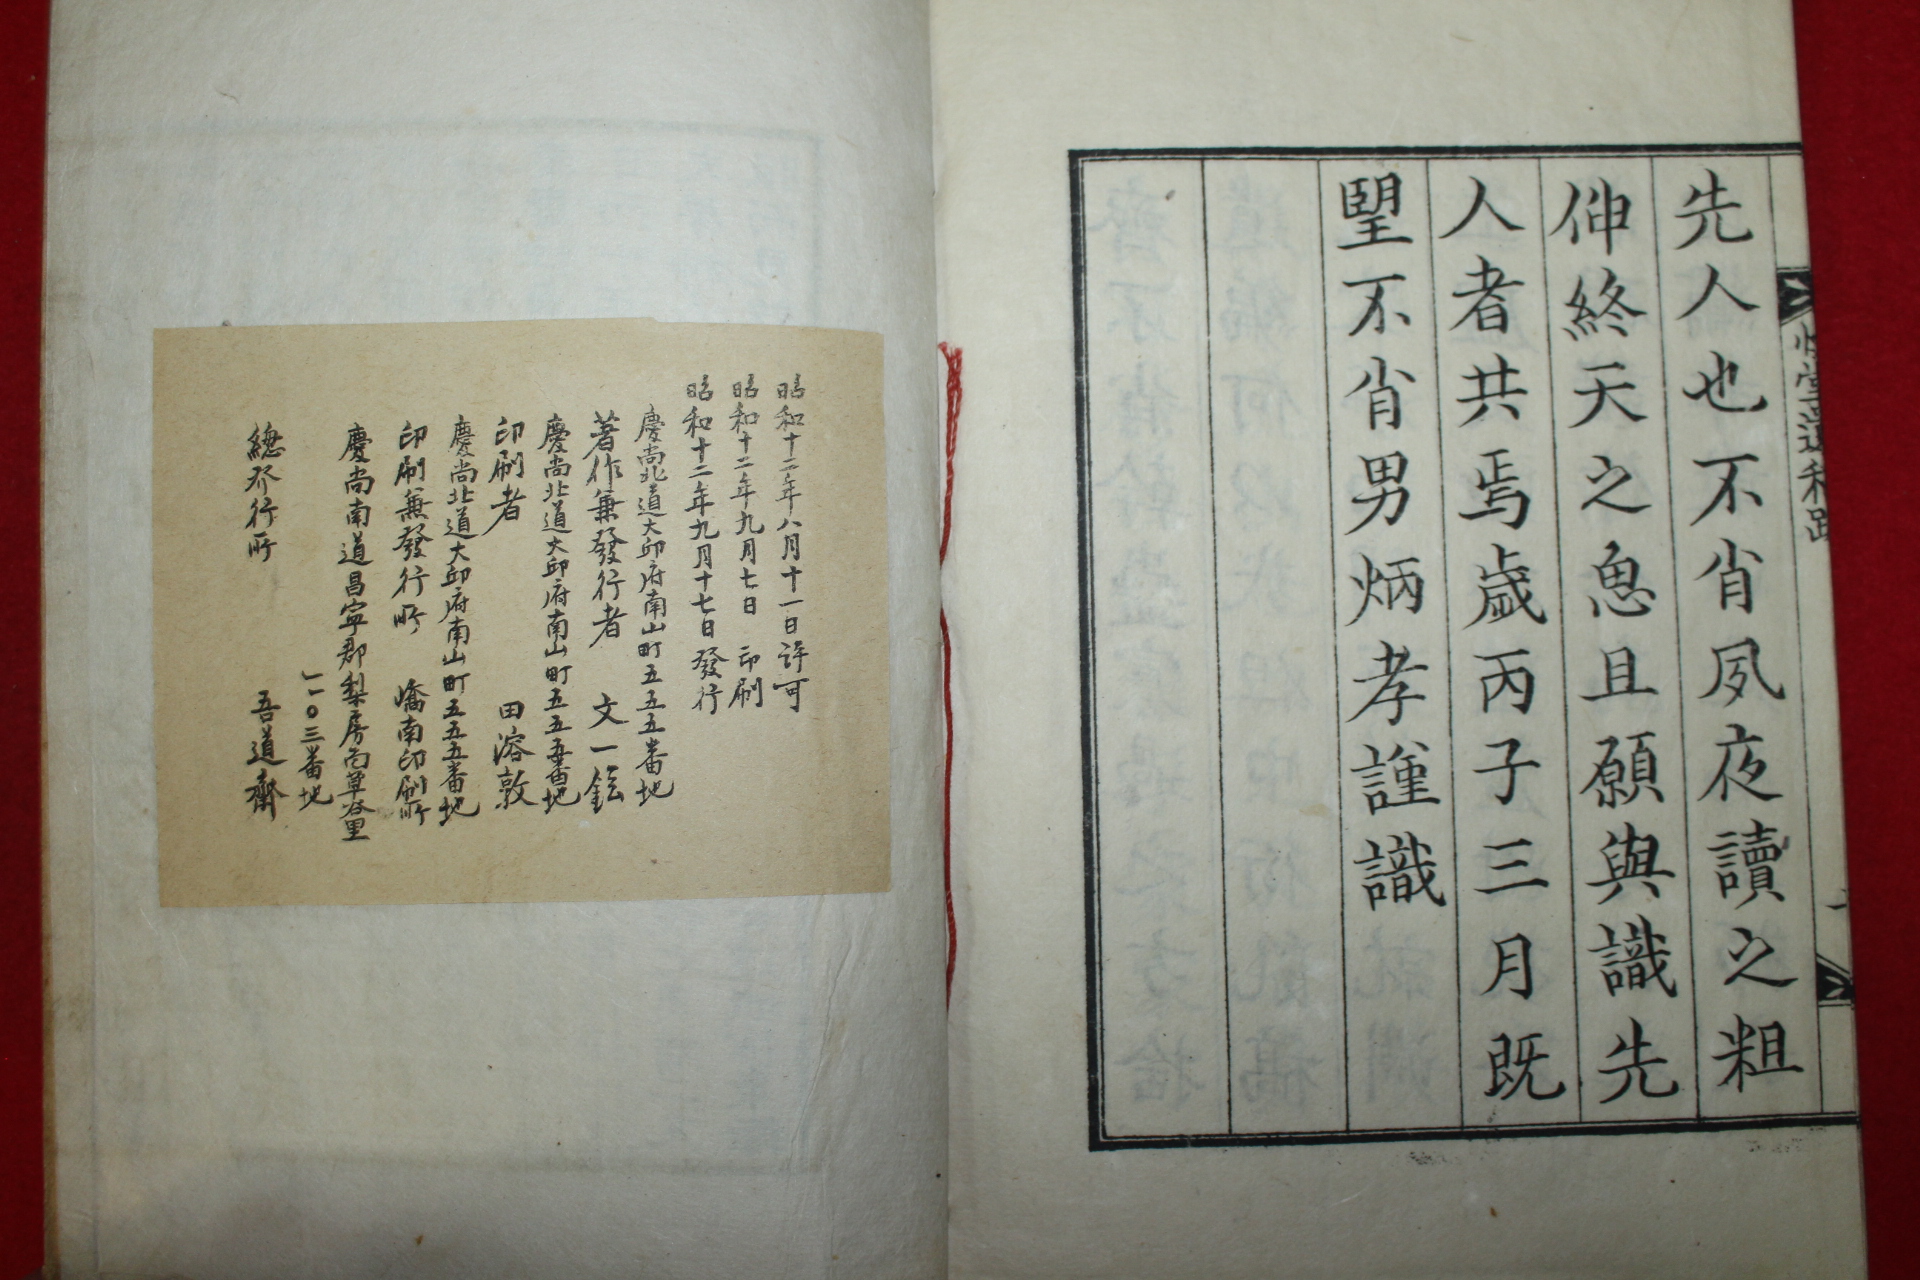 先人也不肖夙夜讀之粗
伸終天之恖且願與識先
人者共焉歲丙子三月既
朢不肖男炳孝謹識
昭和十二年八月十一日許可
昭和十二年九月七日 印刷
昭和十二年九月十七日發行
慶尚北道大邱府南山町五五五番地
著作兼發行者 文一鉉
慶尚北道大邱府南山町五五五番地
印刷者 田溶敦
慶尚北道大邱府南山町五五五番地
印刷兼發行所 嶠南印刷所
慶尚南道昌寧郡梨房面草谷里
一一〇三番地
總發行所 吾道齋